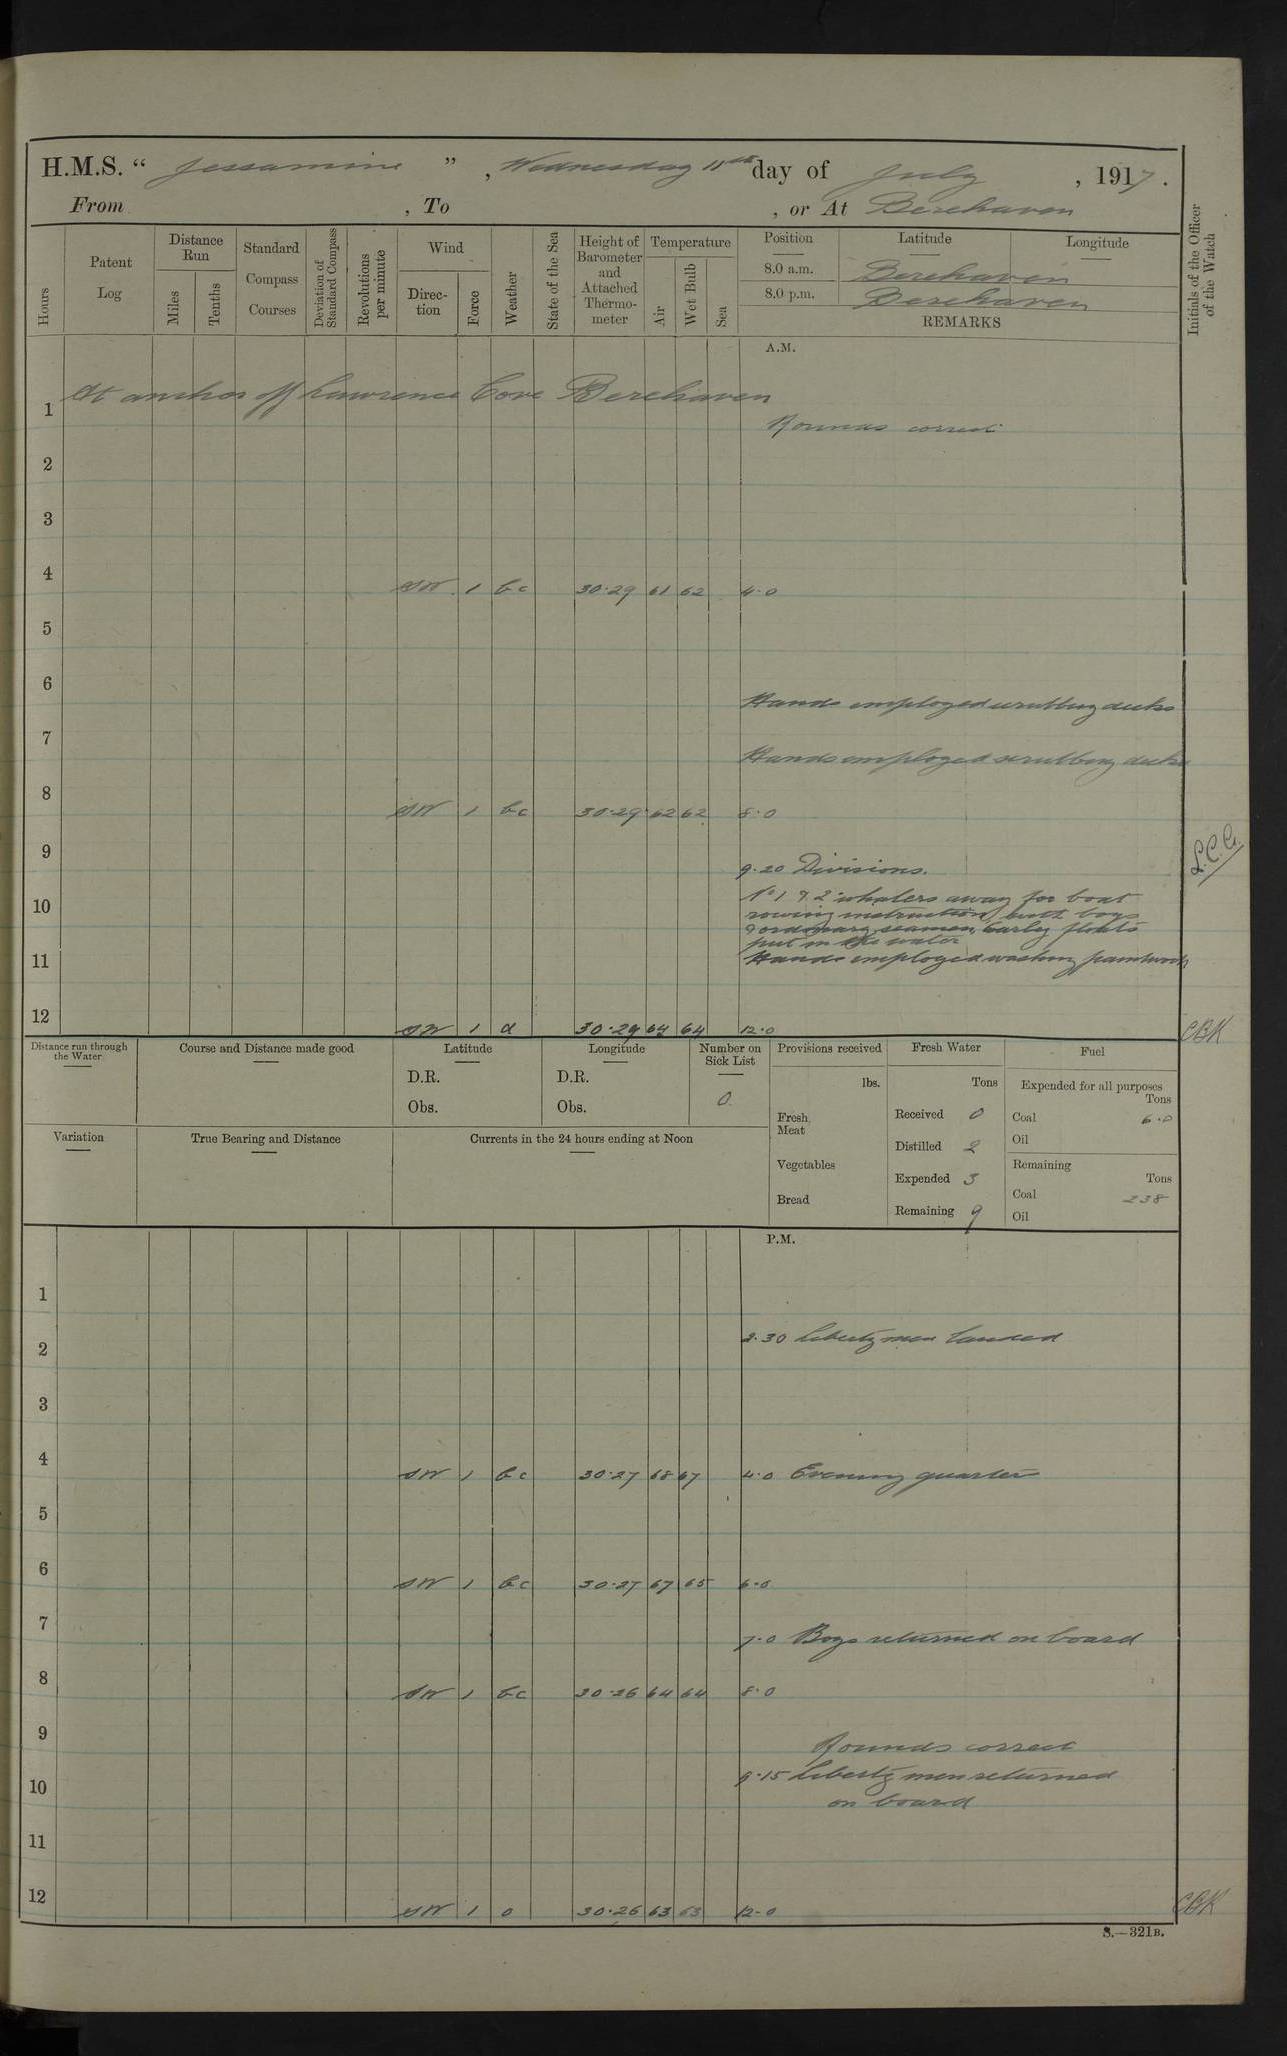 H.M.S. “ Jessamine ” , Wednesday 11th day of July , 1917 .
From , To , or At Berehaven
Hours
Patent Log
Distance Run
Miles
Tenths
Standard Compass Courses
Deviation of Standard Compass
Revolutions per minute
Wind
Direc-tion
Force
Weather
State of the Sea
Height of Barometer and Attached Thermo-meter
Temperature
Air
Wet Bulb
Sea
Position
Latitude
Longitude
8.0 a.m. Berehaven
8.0 p.m. Berehaven
REMARKS
Initials of the Officer of the Watch
A.M.
At anchor off Lawrence Cove Berehaven
1
Rounds correct
2
3
4 SW 1 bc 30.29 61 62 4.0
5
6
Hands employed scrubbing decks
7
Hands employed scrubbing decks
8 SW 1 bc 30.29 62 62 8.0
9
9.20 Divisions. L.C.G.
No 1 & 2 whalers away for boat
10
rowing instruction, with boys
& ordinary seamen, Carley floats
put in the water
11 Hands employed washing paintwork
12 SW 1 d 30.29 64 64 12.0 CBK
Distance run through the Water
Course and Distance made good
Latitude
D.R.
Obs.
Longitude
D.R.
Obs.
Number on Sick List
0
Provisions received
lbs.
Fresh Meat
Vegetables
Bread
Fresh Water
Tons
Received 0
Distilled 2
Expended 3
Remaining 9
Fuel
Expended for all purposes
Tons
Coal 6.0
Oil
Remaining
Tons
Coal 238
Oil
Variation
True Bearing and Distance
Currents in the 24 hours ending at Noon
P.M.
1
2 2.30 Liberty men landed
3
4 SW 1 bc 30.27 68 67 4.0 Evening quarters
5
6 SW 1 bc 30.27 67 65 6.0
7 7.0 Boys returned on board
8 SW 1 bc 30.26 64 64 8.0
9
Rounds correct
10 9.15 Liberty men returned
on board
11
12 SW 1 o 30.26 63 63 12.0 CBK
S.—321B.